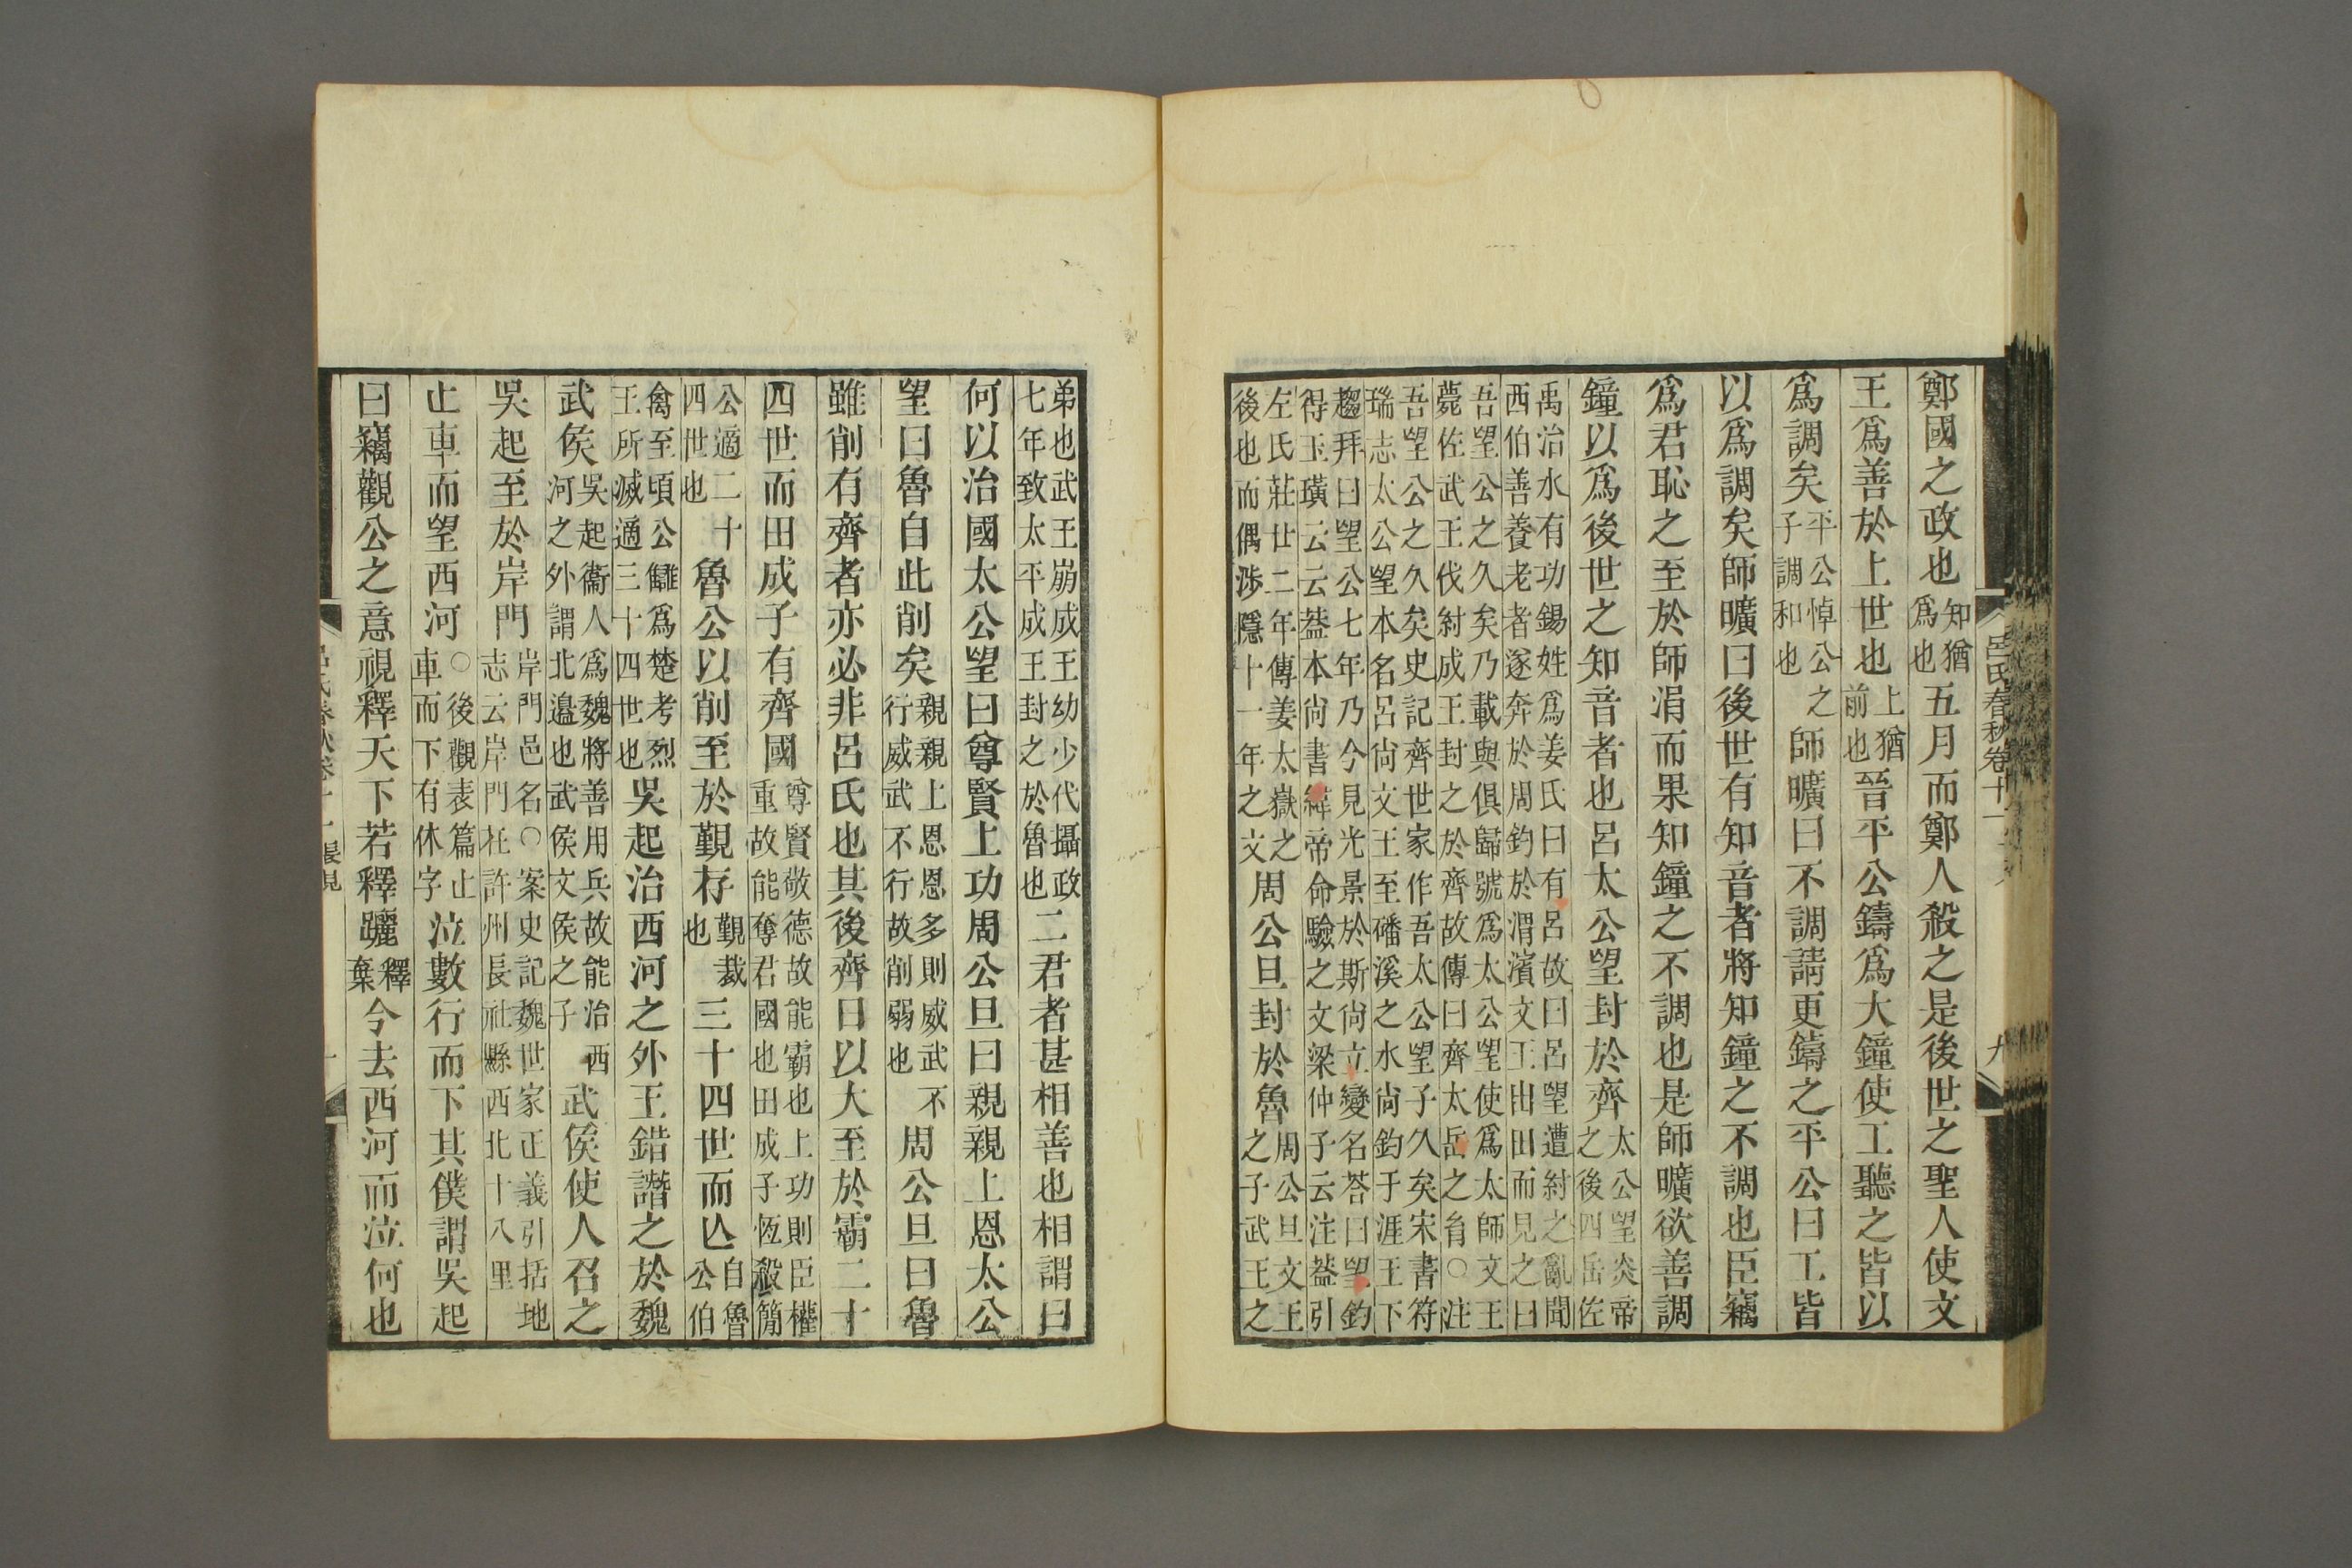 呂氏春秋卷十一
九
鄭國之政也知猶爲也五月而鄭人殺之是後世之聖人使文
王爲善於上世也上猶前也晉平公鑄爲大鐘使工聽之皆以
爲調矣平公悼公之子調和也師曠曰不調請更鑄之平公曰工皆
以爲調矣師曠曰後世有知音者將知鐘之不調也臣竊
爲君恥之至於師涓而果知鐘之不調也是師曠欲善調
鐘以爲後世之知音者也呂太公望封於齊太公望炎帝之後四岳佐
禹治水有功錫姓爲姜氏曰有呂故曰呂望遭紂之亂聞
西伯善養老者遂奔於周釣於渭濱文王出田而見之曰
吾望公之久矣乃載與俱歸號爲太公望使爲太師文王
薨佐武王伐紂成王封之於齊故傳曰齊太岳之胄○注
吾望公之久矣史記齊世家作吾太公望子久矣宋書符
瑞志太公望本名呂尚文王至磻溪之水尚釣于涯王下
趨拜曰望公七年乃今見光景於斯尚立變名荅曰望釣
得玉璜云云葢本尚書緯帝命驗之文梁仲子云注葢引
左氏莊廿二年傳姜太嶽之後也而偶涉隱十一年之文周公旦封於魯周公旦文王之子武王之
弟也武王崩成王幼少代攝政七年致太平成王封之於魯也二君者甚相善也相謂曰
何以治國太公望曰尊賢上功周公旦曰親親上恩太公
望曰魯自此削矣親親上恩恩多則威武不行威武不行故削弱也周公旦曰魯
雖削有齊者亦必非呂氏也其後齊日以大至於霸二十
四世而田成子有齊國尊賢敬德故能霸也上功則臣權重故能奪君國也田成子恆殺簡
公適二十四世也魯公以削至於覲存覲裁也三十四世而亾自魯公伯
禽至頃公讎爲楚考烈王所滅適三十四世也吳起治西河之外王錯譖之於魏
武侯吳起衞人爲魏將善用兵故能治西河之外謂北邊也武侯文侯之子武侯使人召之
吳起至於岸門岸門邑名○案史記魏世家正義引括地志云岸門在許州長社縣西北十八里
止車而望西河○後觀表篇止車而下有休字泣數行而下其僕謂吳起
曰竊觀公之意視釋天下若釋躧釋棄今去西河而泣何也